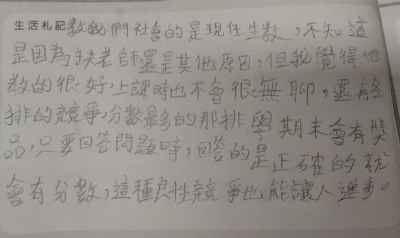 生活札記教我們社會的是現任生教,不知道
是因為缺老師還是其他原因,但我覺得他
教的很好,上課時也不會很無聊,還能
排的競爭,分數最多的那排學期末會有獎
品,只要回答問題時,回答的是正確的就
會有分數,這種良性競爭也能讓人進步。